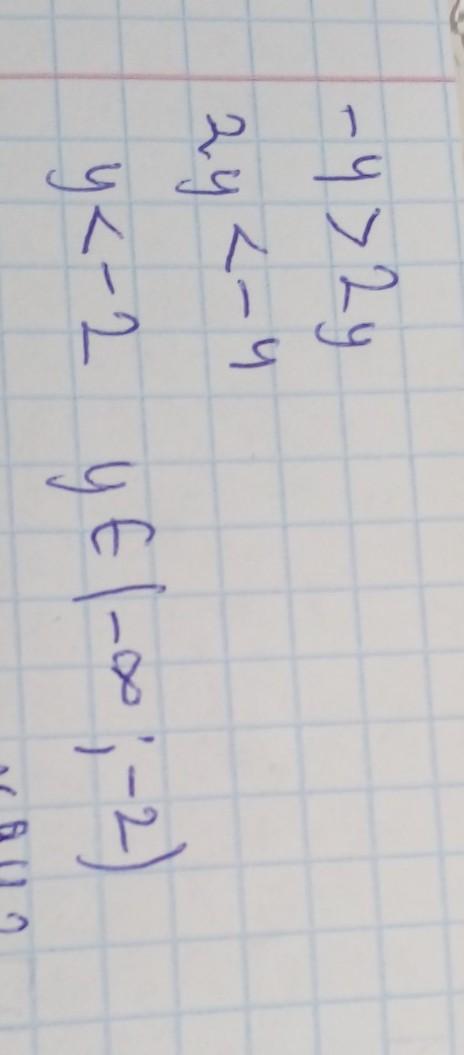 -4 > 2y
2y < -4
y < -2 y ∈ (-∞; -2)